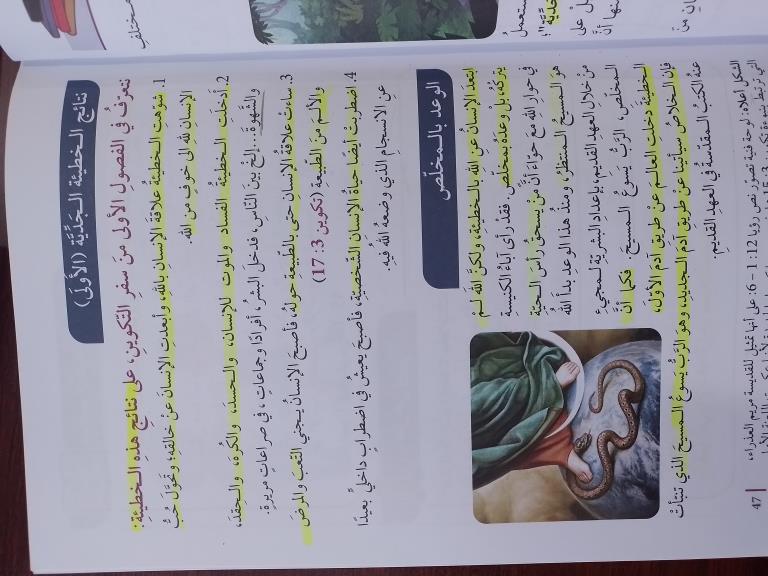 نتائج الخطيئة الجَدِّيَّة (الأولى)
نتعرَّفُ في الفصولِ الأولى منْ سفرِ التكوينِ، على نتائجِ هذِهِ الـخطيئةِ:
1. شوَّهت الـخطيئةُ علاقةَ الإنسانِ باللهِ، وأبعدتِ الإنسانَ عنْ خالقِهِ؛ وتحوَّلَ حُبُّ
الإنسانِ للهِ الى خوفٍ منَ اللهِ.
2. أدخلتِ الـخطيئةُ الفسادَ والموتَ للإنسانِ، والـحسدَ، والكُرهَ، والـحِقدَ،
والشهوةَ... إلخْ بينَ النَّاسِ، فدخلَ البشرُ، أفرادًا وجماعاتٍ، في صراعاتٍ مريرةٍ.
3. ساءتْ علاقةُ الإنسانِ حتى بالطَّبيعةِ حولَهُ، فأصبحَ الإنسانُ يـجني التعبَ والمرضَ
والألمَ منَ الطَّبيعةِ (تكوين 3: 17)
4. اضطربتْ أيضًا حياةُ الإنسانِ الشَّخصيّةِ، فأصبحَ يعيشُ في اضطرابٍ داخليٍّ بعيدًا
عنِ الانسجامِ الذي وضعهُ اللهُ فيهِ.
الوعد بالـمخلّص
ابتعدَ الإنسانُ عنِ اللهِ بالخطيئةِ، ولكنَّ اللهَ لمْ
يتركْهُ، بلْ وعدَهُ بـمخلِّصٍ. فقد رأى آباءُ الكنيسةِ
في حوارِ اللهِ معَ حوّاءَ أنَّ منْ يسحقُ رأسَ الـحيَّةِ
هوَ الـمسيحُ الـمنتظرُ، ومنذُ هذا الوعدِ بدأَ اللهُ
منْ خلالِ العهدِ القديمِ، بإعدادِ البشريَّةِ لـمجيءِ
الـمخلِّصِ، الرَّبُّ يسوعُ الـمسيحَ. فكما أنَّ
الخطيئةَ دخلتِ العالـمَ عنْ طريقِ آدمَ الأوّلِ،
فإنَّ الخلاصَ سيأتينا عنْ طريقِ آدمَ الجديدِ، وهوَ الرَّبُّ يسوعُ الـمسيحَ الّذي تنبأتْ
عنهُ الكتبُ الـمقدّسةُ في العهدِ القديمِ.
الشكل أعلاه: لوحة فنية تصور نص رؤيا 12: 1 - 6؛ على أنها تمثيل للقديسة مريم العذراء،
47